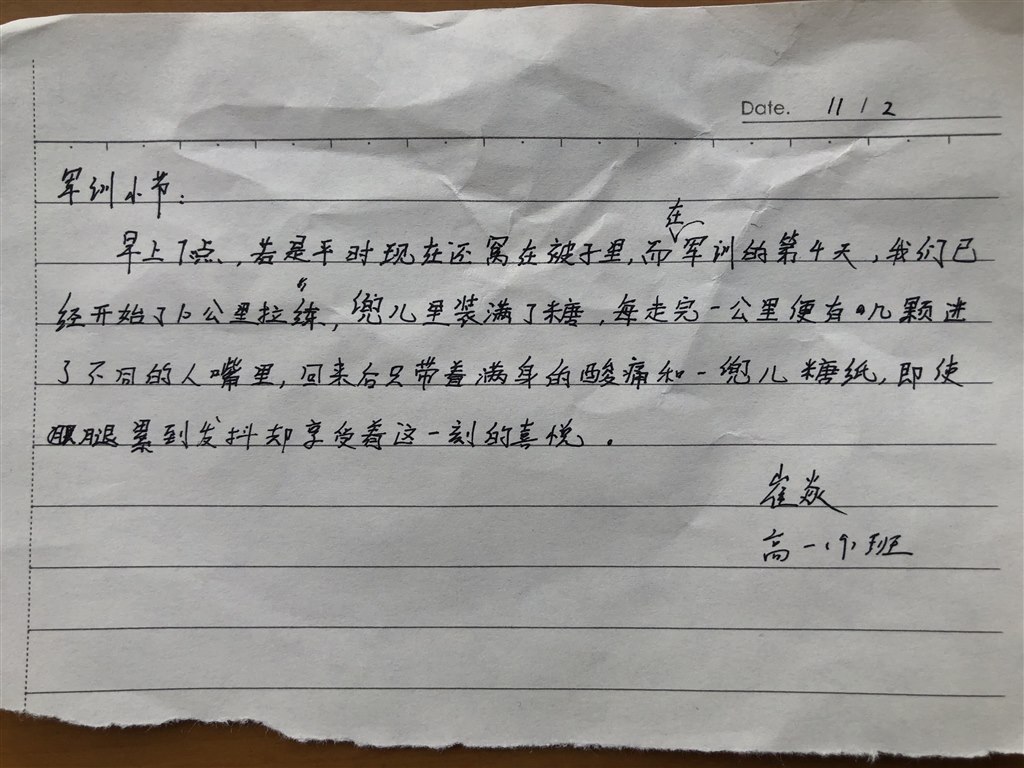 Date. 11 / 2
军训小节：
早上7点，若是平时现在还窝在被子里，而在军训的第4天，我们已
经开始了15公里拉练，兜儿里装满了糖，每走完一公里便有几颗进
了不同的人嘴里，回来后只带着满身的酸痛和一兜儿糖纸，即使
腿累到发抖却享受着这一刻的喜悦。
崔焱
高一（9）班